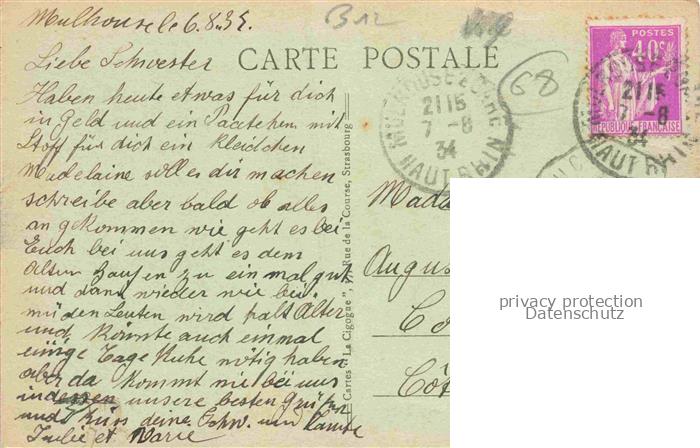 Mulhouse le 6.8.34.
B12
CARTE POSTALE
68
Liebe Schwester
Haben heute etwas für dich
in Geld und ein Paetchen mit
Stoff für dich ein Kleidchen
Madelaine soll es dir machen
schreibe aber bald ob alles
an gekommen wie geht es bei
Euch bei uns geht es dem
Alten Haufen zu ein mal gut
und dann wieder wie bei
müden Leuten wird halt Älter
und könnte auch einmal
einige Tage Ruhe nötig haben
aber da kommt nie bei uns
indessen unsere besten Grüße
und Küss deine Schw. und
Julie et Marie
Cartes "La Cigogne", 37, Rue de la Course, Strasbourg
MULHOUSE GARE
21 15
7 - 8
34
HAUT RHIN
POSTES
40c
REPUBLIQUE FRANÇAISE
21 15
7 - 8
34
HAUT RHIN
Mada
Augus
Co
Côt
privacy protection
Datenschutz